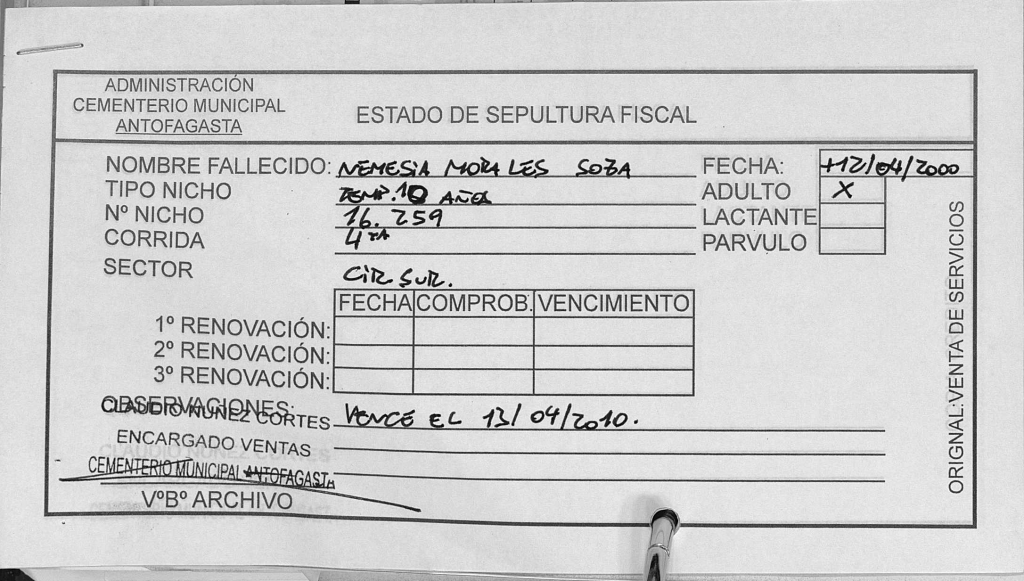 ADMINISTRACIÓN
CEMENTERIO MUNICIPAL
ANTOFAGASTA
ESTADO DE SEPULTURA FISCAL
NOMBRE FALLECIDO: NEMESIA MORALES SOZA
FECHA: +12/04/2000
TIPO NICHO TEMP. 10 AÑOS
ADULTO X
Nº NICHO 16.259
LACTANTE
CORRIDA 4TA
PARVULO
SECTOR CIR. SUR.
FECHA COMPROB. VENCIMIENTO
1º RENOVACIÓN:
2º RENOVACIÓN:
3º RENOVACIÓN:
OBSERVACIONES: VENCE EL 13/04/2010.
CLAUDIO NUÑEZ CORTES
ENCARGADO VENTAS
CEMENTERIO MUNICIPAL ANTOFAGASTA
VºBº ARCHIVO
ORIGNAL:VENTA DE SERVICIOS